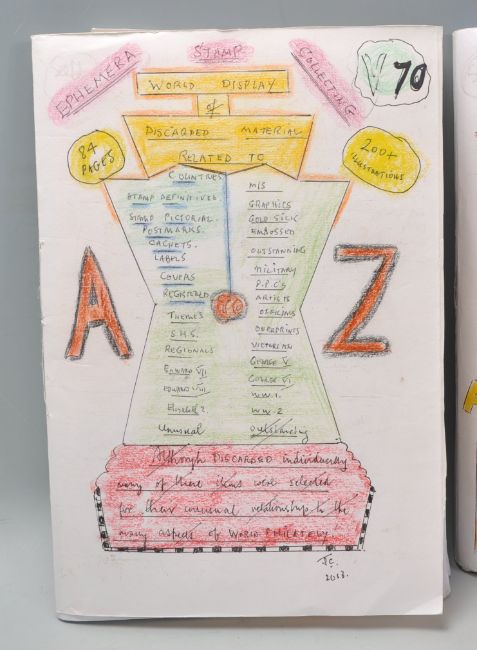 EPHEMERA
STAMP
COLLECTING
V 70
WORLD DISPLAY
of
DISCARDED MATERIAL
RELATED TO
84
PAGES
200+
ILLUSTRATIONS
A
Z
COUNTRIES
STAMP DEFINITIVES
STAMP PICTORIAL
POSTMARKS.
CACHETS.
LABELS
COVERS
REGISTERED
THEMES
S.H.S.
REGIONALS
EDWARD VII
EDWARD VIII
Elizabeth 2.
Unusual
M/S
GRAPHICS
GOLD SILK
EMBOSSED
OUTSTANDING
MILITARY
P.P.C's
ARTISTS
OFFICIALS
OVERPRINTS
VICTORIAN
GEORGE V
GEORGE VI
W.W.1.
WW.2
Outstanding
Although DISCARDED individually
many of these items were selected
for their unusual relationship to the
many aspects of WORLD PHILATELY
2013.